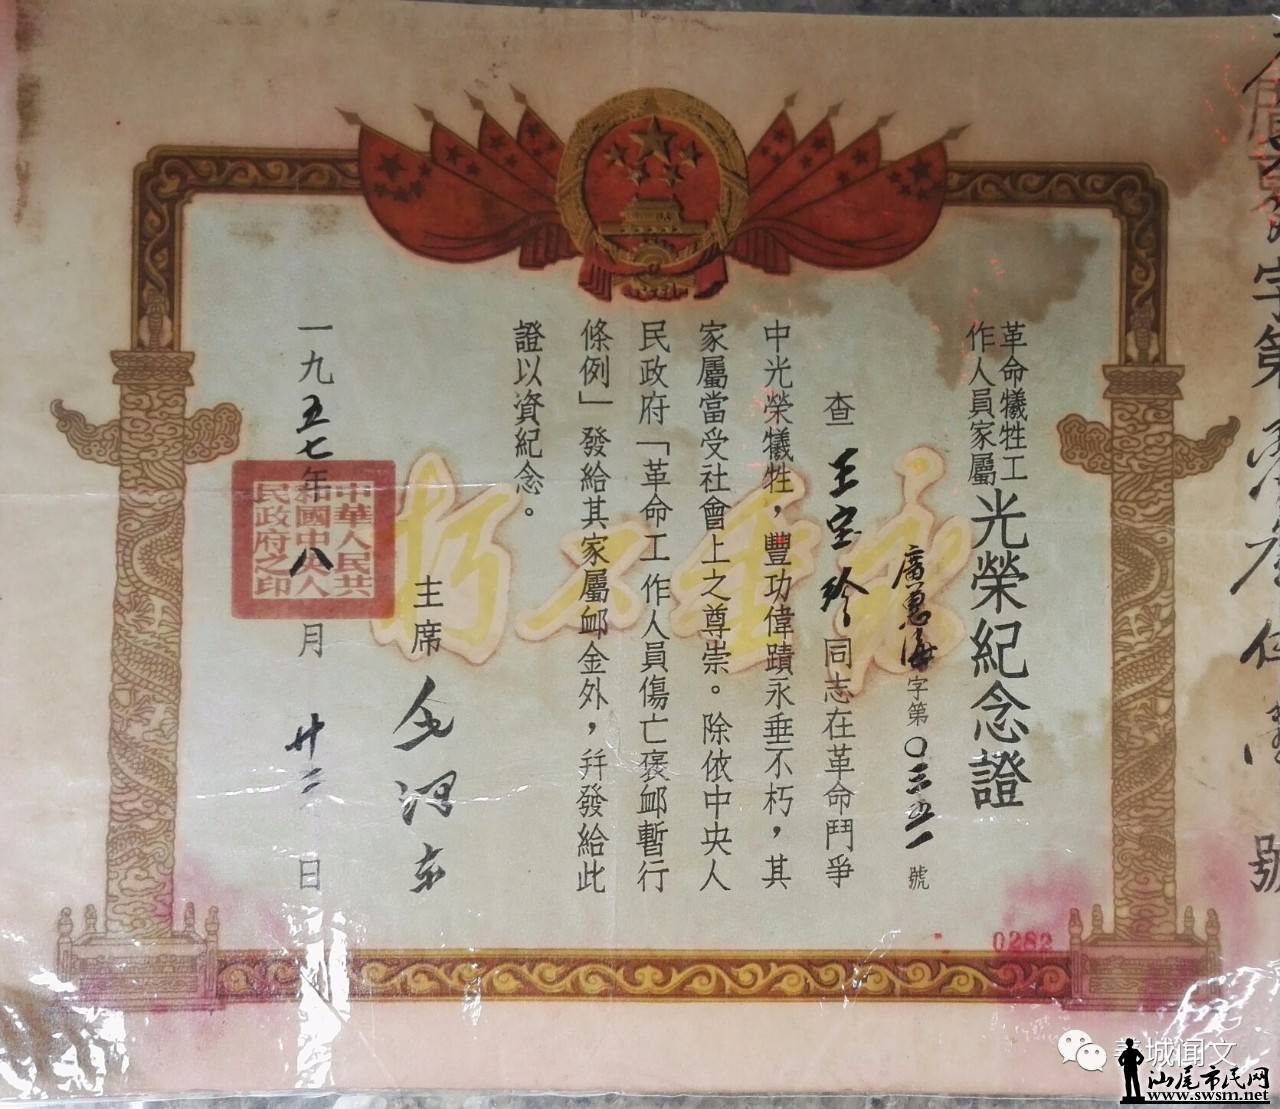 革命犧牲工
作人員家屬
光榮紀念證
廣惠海字第〇三五一號
查王宝珍同志在革命鬥爭
中光榮犧牲，豐功偉蹟永垂不朽，其
家屬當受社會上之尊崇。除依中央人
民政府「革命工作人員傷亡褒卹暫行
條例」發給其家屬卹金外，幷發給此
證以資紀念。
主席 毛澤东
一九五七年八月廿二日
中華人民共
和國中央人
民政府之印
永垂不朽
0282
字第
號
城闻文
汕尾市民网
www.swsm.net